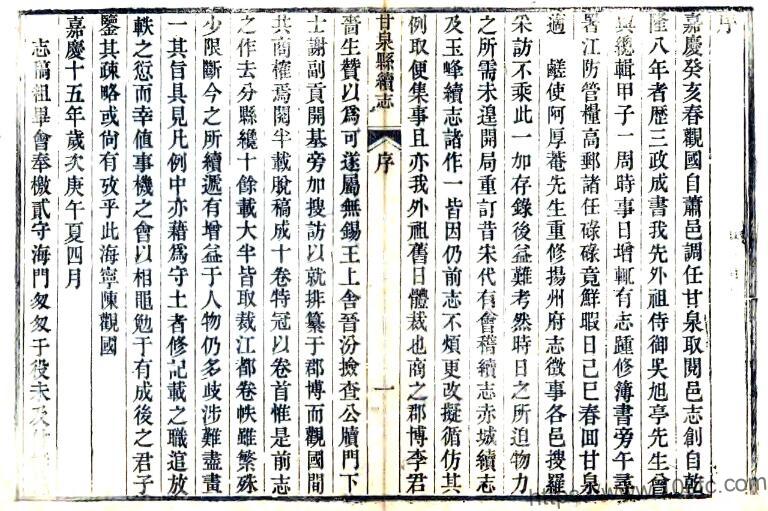 序
嘉慶癸亥春觀國自蕭邑調任甘泉取閱邑志創自乾
隆八年者歷三政成書我先外祖侍御吳旭亭先生會
其纔輯甲子一周時事日增輒有志踵修簿書旁午尋
署江防管糧高郵諸任碌碌竟鮮暇日己巳春囬甘泉
適 鹺使阿厚菴先生重修揚州府志徵事各邑搜羅
采訪不乘此一加存錄後益難考然時日之所迫物力
之所需未遑開局重訂昔宋代有會稽續志赤城續志
及玉峰續志諸作一皆因仍前志不煩更改擬循仿其
例取便集事且亦我外祖舊日體裁也商之郡博李君
甘泉縣續志 序 一
嗇生贊以爲可遂屬無錫王上舍晉汾撿查公牘門下
士謝副貢開基旁加搜訪以就排纂于郡博而觀國間
共商榷焉閱半載脫稿成十卷特冠以卷首惟是前志
之作去分縣纔十餘載大半皆取裁江都卷帙雖繁殊
少限斷今之所續遞有增益于人物仍多歧涉難盡畫
一其旨具見凡例中亦藉爲守土者修記載之職逭放
軼之愆而幸值事機之會以相黽勉于有成後之君子
鑒其疎略或尙有攷乎此海寧陳觀國
嘉慶十五年歲次庚午夏四月
志稿粗畢會奉檄貳守海門匆匆于役未及